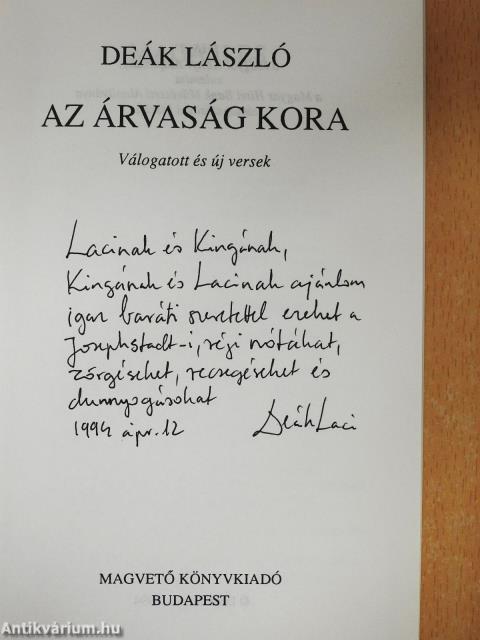 DEÁK LÁSZLÓ
AZ ÁRVASÁG KORA
Válogatott és új versek
Lacinak és Kingának,
Kingának és Lacinak ajánlom
igaz baráti szeretettel ezeket a
Josephstadt-i, régi nótákat,
zörgéseket, recsegéseket és
dunnyogásokat
1994 ápr. 12 Deák Laci
MAGVETŐ KÖNYVKIADÓ
BUDAPEST
Antikvárium.hu